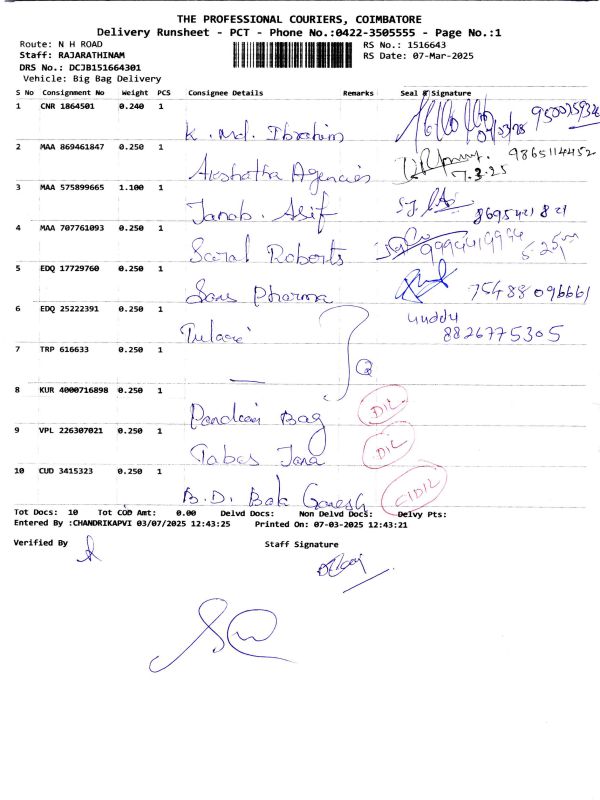 THE PROFESSIONAL COURIERS, COIMBATORE
Delivery Runsheet - PCT - Phone No.:0422-3505555 - Page No.:1
Route: N H ROAD RS No.: 1516643
Staff: RAJARATHINAM RS Date: 07-Mar-2025
DRS No.: DCJB151664301
Vehicle: Big Bag Delivery
S No Consignment No Weight PCS Consignee Details Remarks Seal & Signature
1 CNR 1864501 0.240 1 K. Md. Ibrahim
2 MAA 869461847 0.250 1 Akshatha Agencies 9865114452
7.3.25
3 MAA 575899665 1.100 1 Janab. Asif 8695421821
4 MAA 707761093 0.250 1 Saral Roberts 9994419994
5 EDQ 17729760 0.250 1 Sans Pharma 7548809 6661
6 EDQ 25222391 0.250 1 Tulasi 8826775305
7 TRP 616633 0.250 1
8 KUR 4000716898 0.250 1 Bag DIL
9 VPL 226307021 0.250 1 Tabas Jana DIL
10 CUD 3415323 0.250 1 B.D. Ganesh
Tot Docs: 10 Tot COD Amt: 0.00 Delvd Docs: Non Delvd Docs: Delvy Pts:
Entered By :CHANDRIKAPVI 03/07/2025 12:43:25 Printed On: 07-03-2025 12:43:21
Verified By Staff Signature